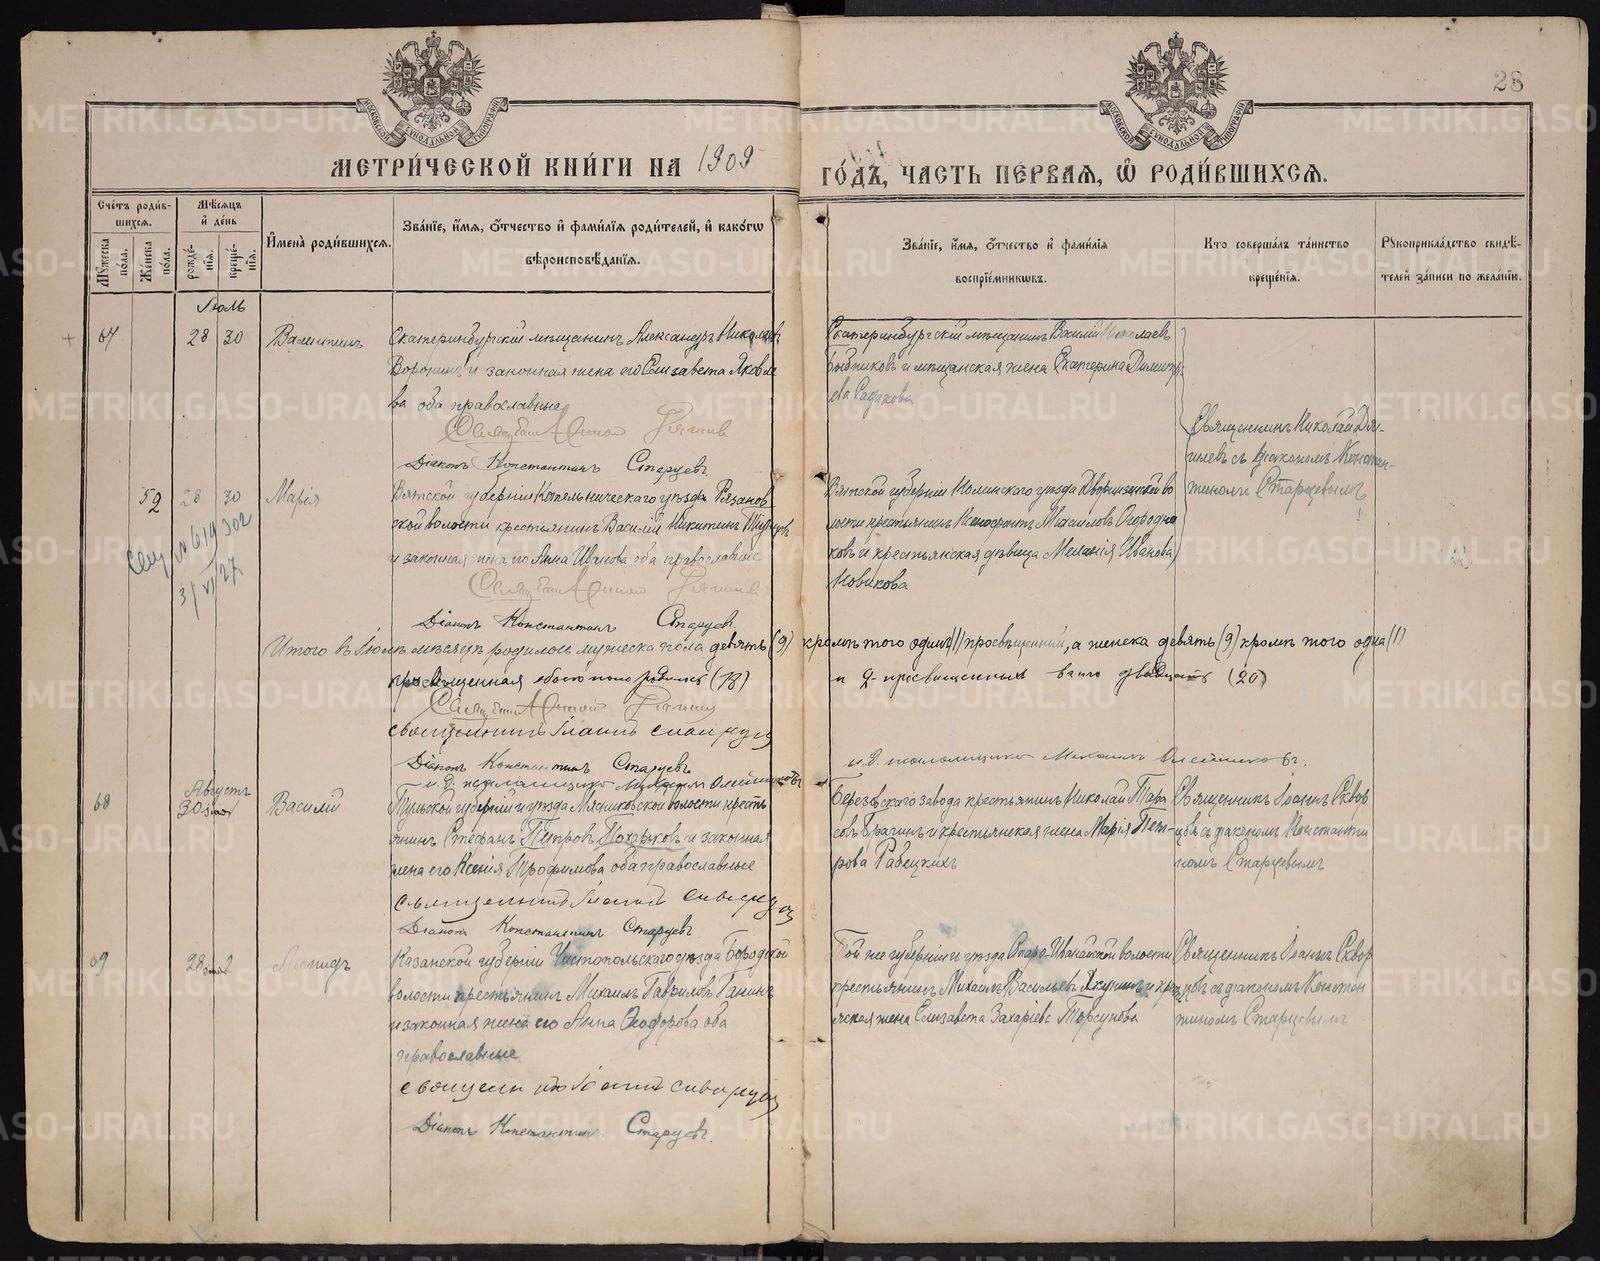 28
МОСКОВСКОЙ СѴНОДАЛЬНОЙ ТИПОГРАФІИ
МОСКОВСКОЙ СѴНОДАЛЬНОЙ ТИПОГРАФІИ
МЕТРИ́ЧЕСКОЙ КНИ́ГИ НА 1909 ГО́ДЪ, ЧАСТЬ ПЕ́РВАѦ, Ѡ҆ РОДИ́ВШИХСѦ.
Сче́тъ роди́в-
шихсѧ.
Му́жеска по́ла.
Же́нска по́ла.
Мѣ́сѧцъ
и҆ де́нь
рожде́-
нїѧ.
креще́-
нїѧ.
И҆мена̀ роди́вшихсѧ.
Зва́нїе, и҆́мѧ, ѻ҆́тчество и҆ фами́лїѧ роди́телей, и҆ како́гѡ
вѣроисповѣ́данїѧ.
Зва́нїе, и҆́мѧ, ѻ҆́тчество и҆ фами́лїѧ
воспрїе́мникѡвъ.
Кто соверша́лъ та́инство
креще́нїѧ.
Рꙋкоприкла́дство свидѣ́-
телей за́писи по жела́нїю.
Іюль
28 30 Валентинъ
Екатеринбургскій мѣщанинъ Александръ Николаевъ
Воронинъ и законная жена его Елизавета Яковле
ва оба православные
Діаконъ Константинъ Старцевъ
Екатеринбургскій мѣщанинъ Василій Николаевъ
и мѣщанская жена Екатерина Димитрі
ева
Священникъ Николай
съ діакономъ Констан-
тиномъ Старцевымъ
52 28 30 Марія
Вятской губерніи Котельническаго уѣзда Рязанов
ской волости крестьянинъ Василій Никитинъ
и законная жена его Анна Иванова оба православные
Діаконъ Константинъ Старцевъ.
Вятской губерніи Нолинскаго уѣзда во
лости крестьянинъ Ксенофонтъ Михаиловъ Огородни
ковъ и крестьянская дѣвица Меланія Иванова
Новикова
№ 619 302
31/VI 27
Итого въ Іюлѣ мѣсяцѣ родилось мужеска пола девять (9) кромѣ того одинъ (1) просвѣщенный, а женска девять (9) кромѣ того одна (1)
просвѣщенная обоего пола родилось (18) и 2 просвѣщенныхъ всего двадцать (20)
Священникъ Іоаннъ Скворцовъ
Діаконъ Константинъ Старцевъ
и.д. псаломщика Михаилъ Олейниковъ
и.д. псаломщика Михаилъ Олейниковъ.
Августъ
68 30 Василій
Тульской губерніи и уѣзда Мясниковской волости кресть
янинъ Стефанъ Петровъ Похарьковъ и законная
жена его Ксенія Трофимова оба православные
Священникъ Іоаннъ Скворцовъ
Діаконъ Константинъ Старцевъ
Березовскаго завода крестьянинъ Николай Тара
совъ Брагинъ и крестьянская жена Марія Пет-
рова
Священникъ Іоаннъ Сквор
цовъ съ діакономъ Константи
номъ Старцевымъ
69 28 2 Леонидъ
Казанской губерніи Чистопольскаго уѣзда
волости крестьянинъ Михаилъ Гавриловъ Ганинъ
и законная жена его Анна Ѳеодорова оба
православные
Священникъ Іоаннъ Скворцовъ
Діаконъ Константинъ Старцевъ.
Той же губерніи и уѣзда Старо-Иванаевской волости
крестьянинъ Михаилъ Васильевъ Якунинъ и кре
стьянская жена Елизавета Захаріева Торсунова
Священникъ Іоаннъ Сквор
цовъ съ діакономъ Констан
тиномъ Старцевымъ
METRIKI.GASO-URAL.RU